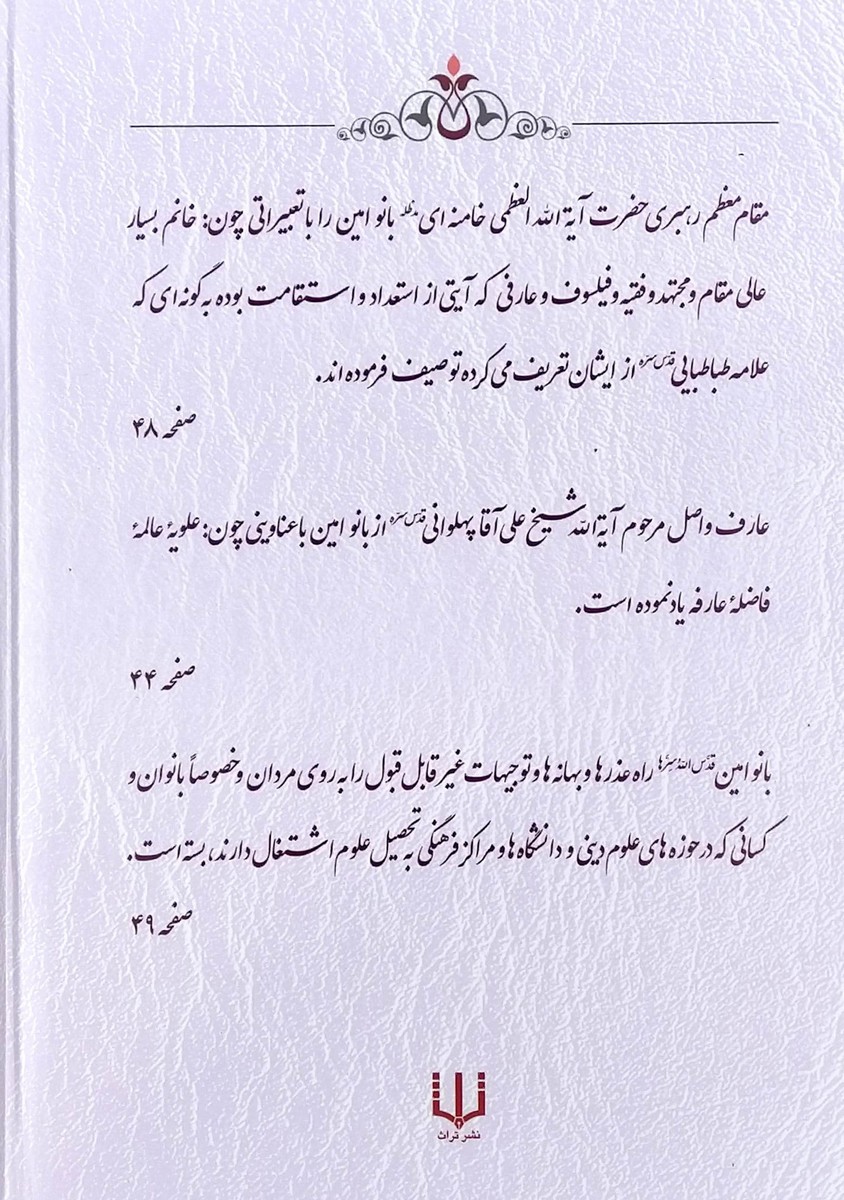 مقام معظم رهبری حضرت آیة الله العظمی خامنه ای مدظله بانو امین را با تعبیراتی چون: خانم بسیار
عالی مقام و مجتهد و فقیه و فیلسوف و عارفی که آیتی از استعداد و استقامت بوده به گونه ای که
علامه طباطبایی قدّس سرّه از ایشان تعریف می کرده توصیف فرموده اند.
صفحه ۴۸
عارف واصل مرحوم آیة الله شیخ علی آقا پهلوانی قدّس سرّه از بانو امین با عناوینی چون: علویۀ عالمۀ
فاضلۀ عارفه یاد نموده است.
صفحه ۴۴
بانو امین قدّس اللّه سرّها راه عذرها و بهانه ها و توجیهات غیر قابل قبول را به روی مردان و خصوصاً بانوان و
کسانی که در حوزه های علوم دینی و دانشگاه ها و مراکز فرهنگی به تحصیل علوم اشتغال دارند، بسته است.
صفحه ۴۹
تراث
نشر تراث